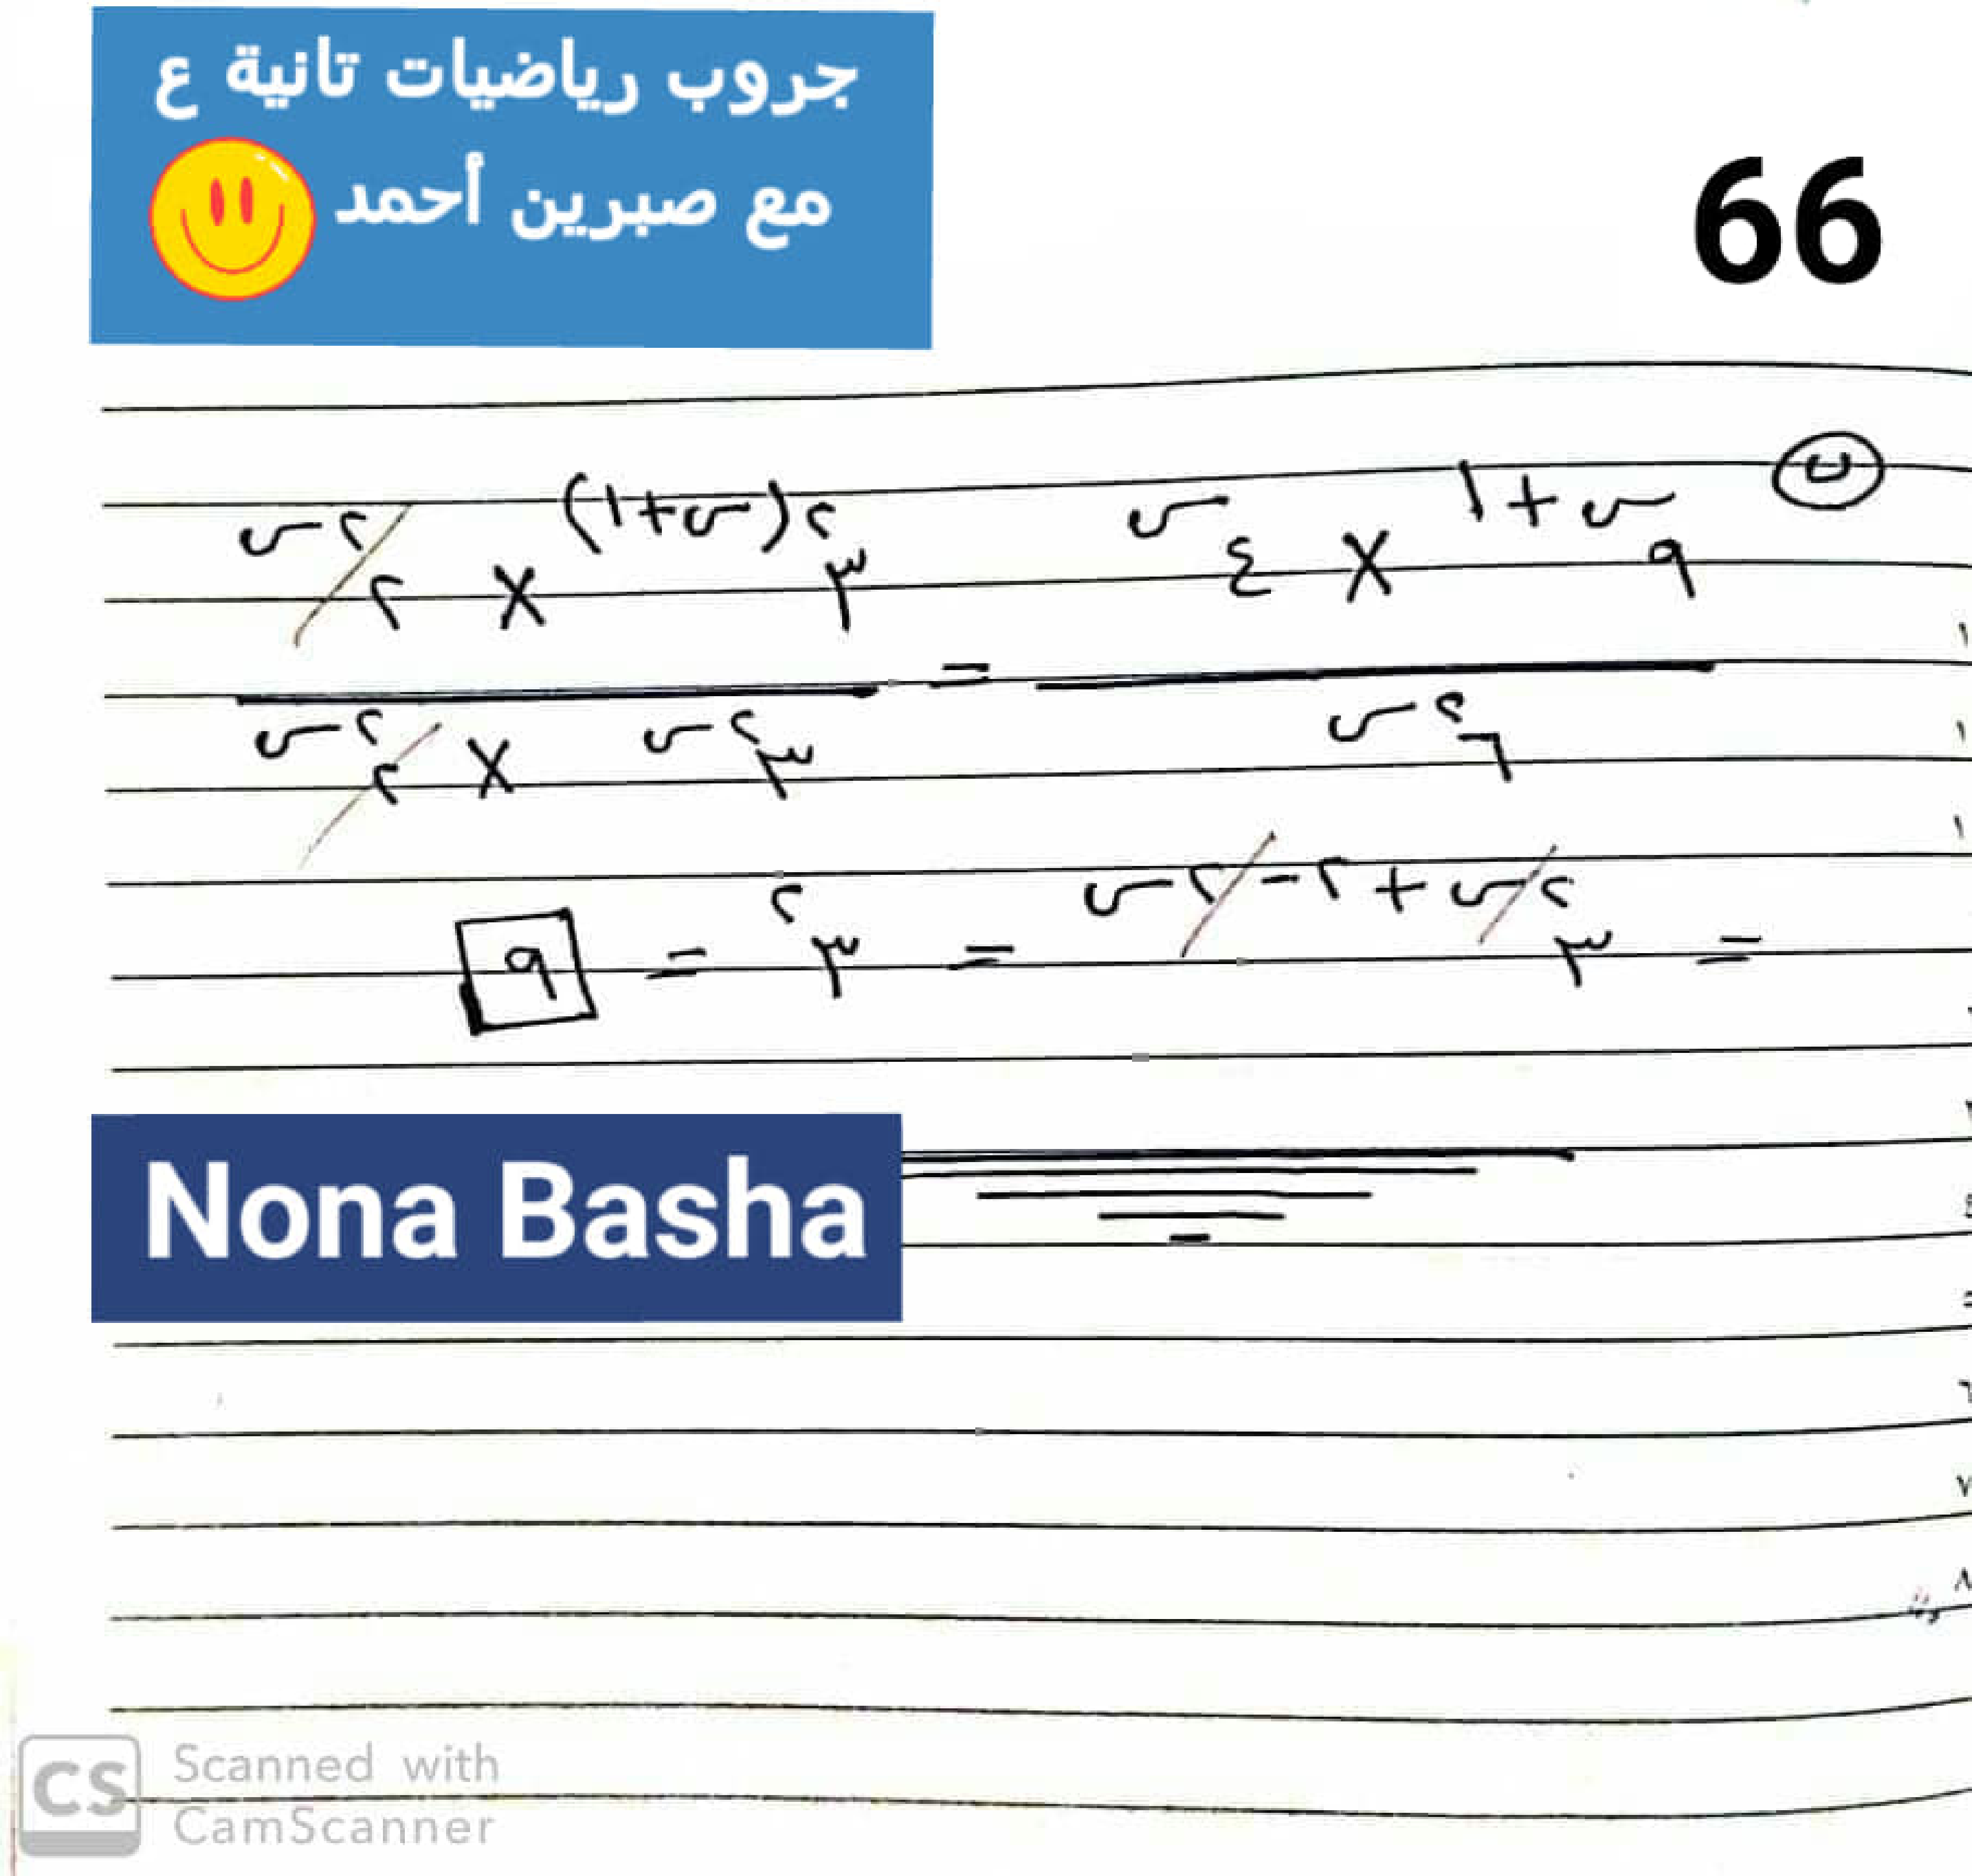 جروب رياضيات تانية ع
مع صبرين أحمد
66
ں
٩^(س+١) × ٤^س / ٦^(٢س) = ٣^(٢(س+١)) × ٢^(٢س) / ٣^(٢س) × ٢^(٢س)
= ٣^(٢س+٢-٢س) = ٣^٢ = ٩
Nona Basha
CS Scanned with
CamScanner